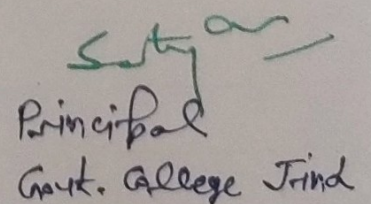 Principal
Govt. College Jind